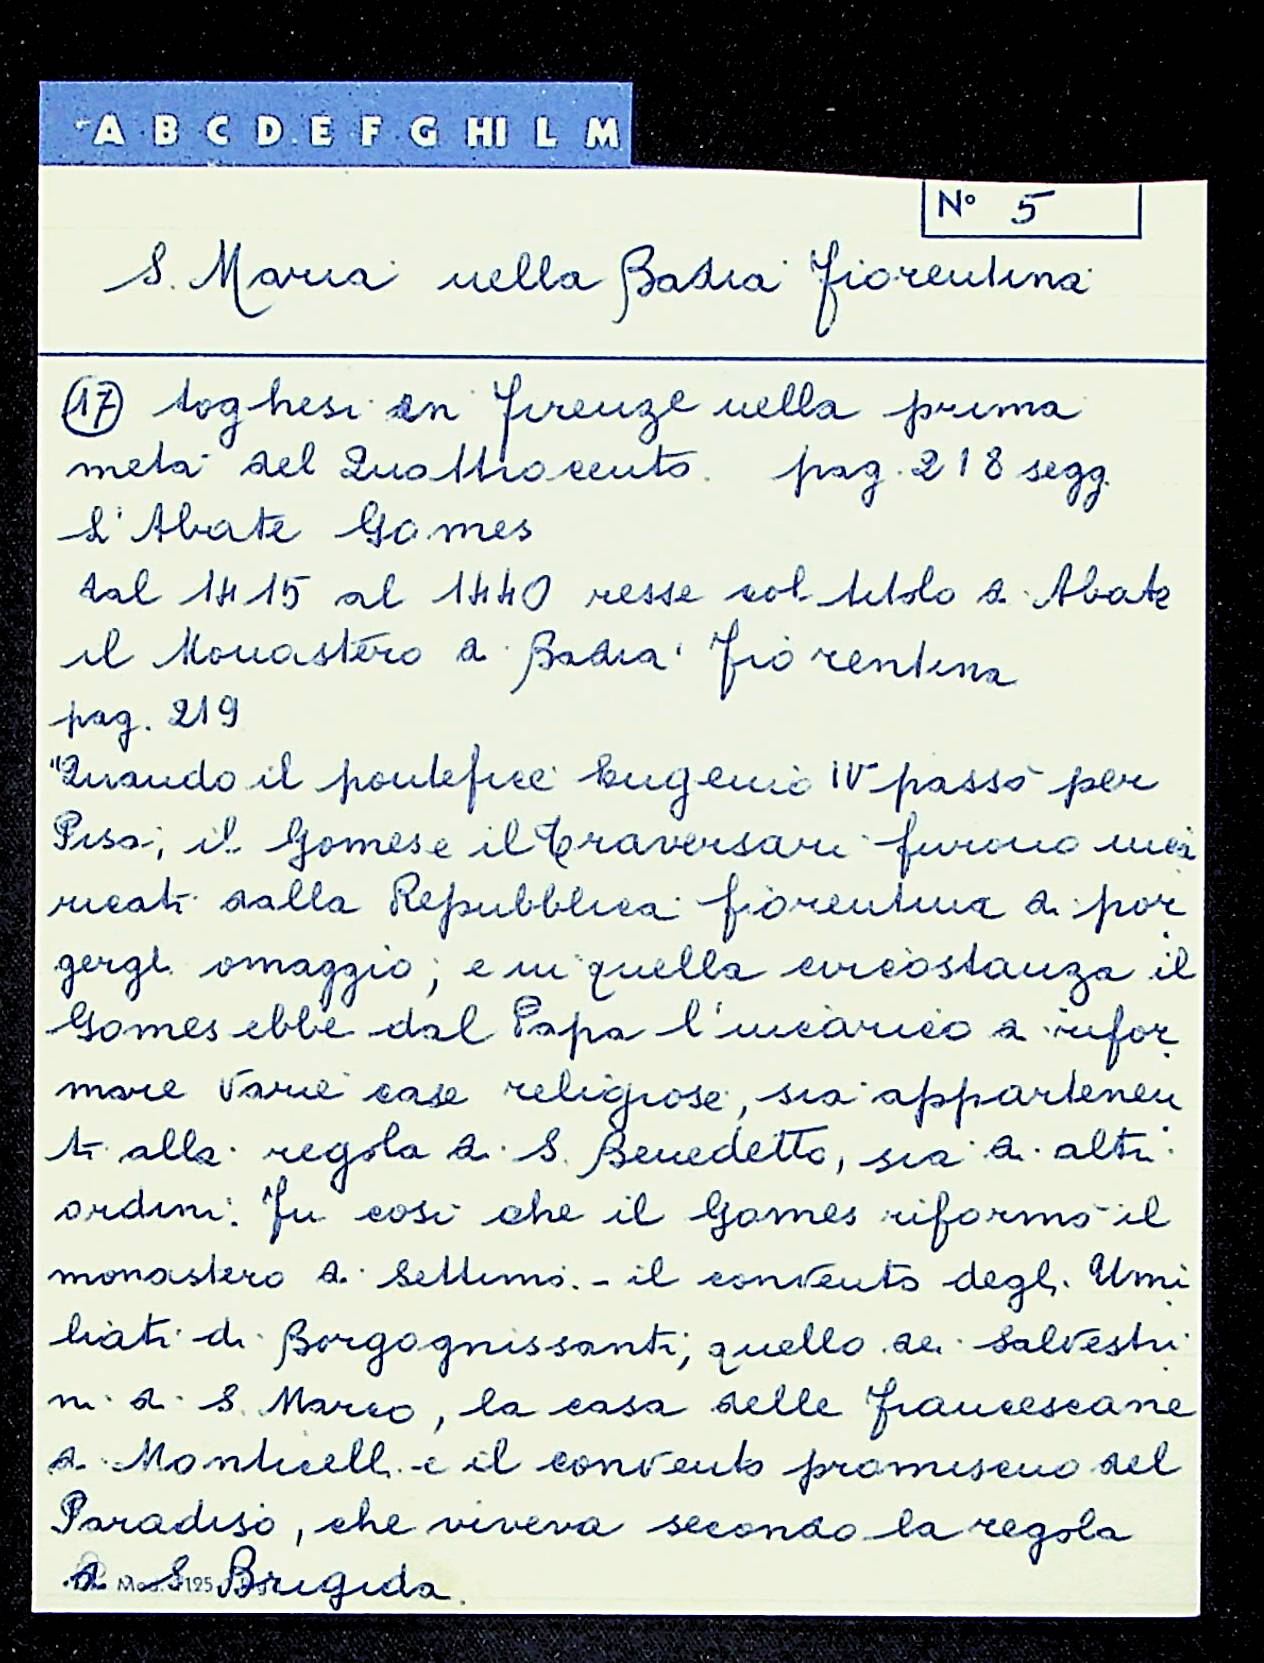 A B C D E F G HI L M
N° 5
S. Maria nella Badia Fiorentina
(17) toghesi in Firenze nella prima
metà del Quattrocento. pag. 218 segg.
L'Abate Gomes
dal 1415 al 1440 resse col titolo di Abate
il Monastero di Badia Fiorentina
pag. 219
"Quando il pontefice Eugenio IV passò per
Pisa, il Gomes e il Traversari furono inca
ricati dalla Repubblica fiorentina di por
gergli omaggio; e in quella circostanza il
Gomes ebbe dal Papa l'incarico di rifor
mare varie case religiose, sia appartenen
ti alla regola di S. Benedetto, sia di altri
ordini. Fu così che il Gomes riformò il
monastero di Settimo. - il convento degli Umi
liati di Borgognissanti; quello dei Salvestri
ni di S. Marco, la casa delle Francescane
di Monticelli e il convento promiscuo del
Paradiso, che viveva secondo la regola
di S. Brigida.